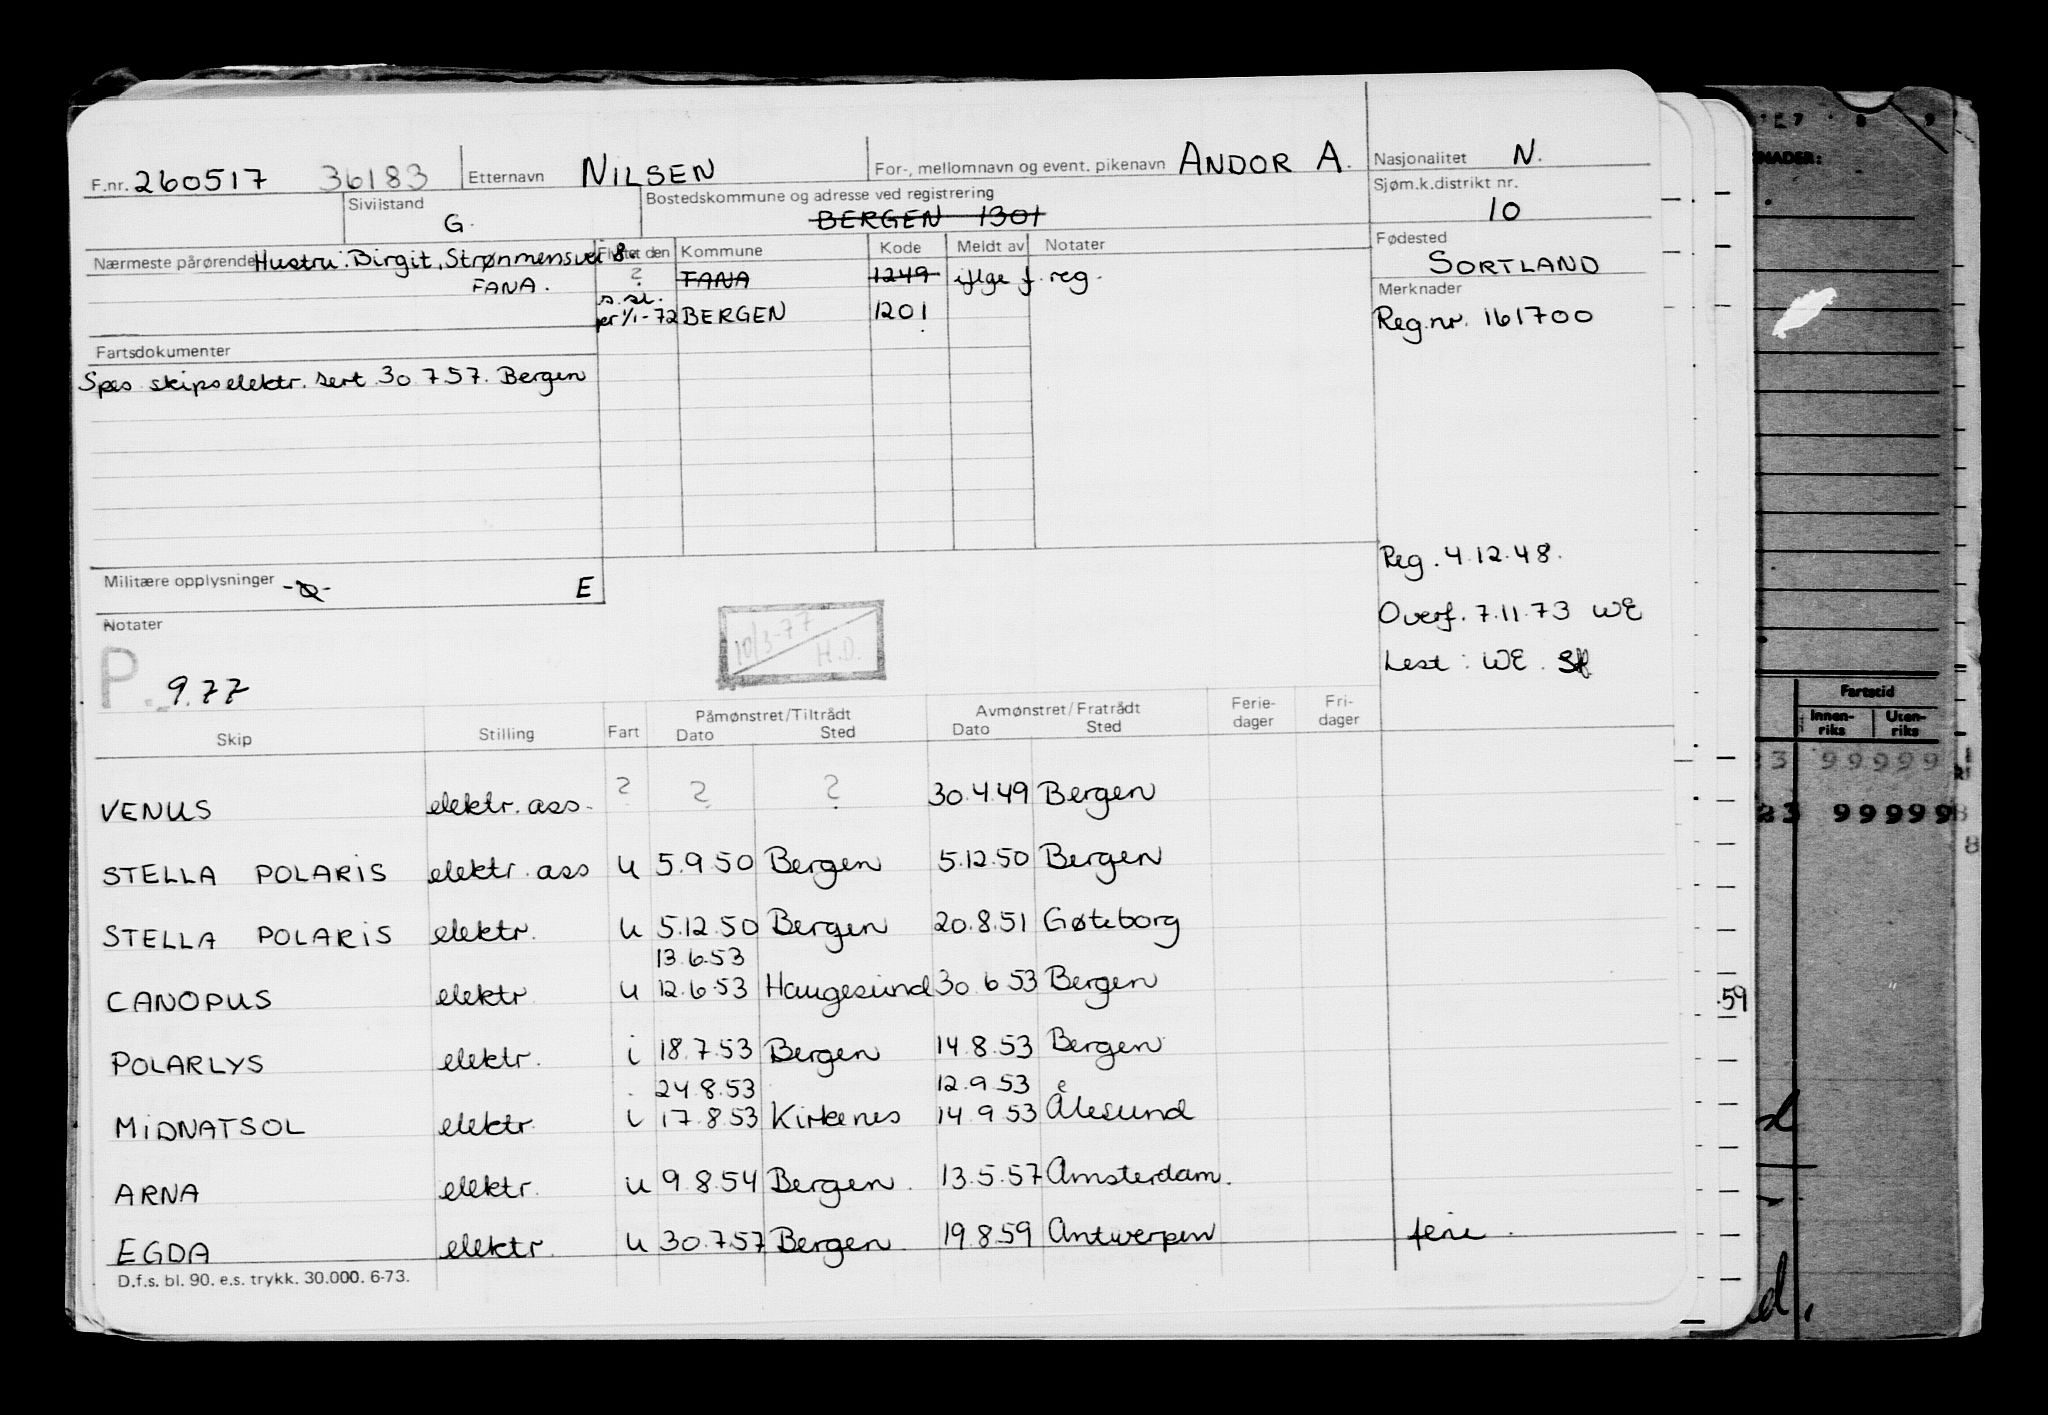 F.nr. 260517 36183 Etternavn NILSEN For-, mellomnavn og event. pikenavn ANDOR A. Nasjonalitet N.
Sivilstand G. Bostedskommune og adresse ved registrering BERGEN 1301 Sjøm.k.distrikt nr. 10
Nærmeste pårørende Hustru: Birgit, Strønmensvei 8. Flyttet den Kommune Kode Meldt av Notater Fødested
FANA. ? FANA 1249 iflge f. reg. SORTLAND
s.st.
per 1/1-72 BERGEN 1201
Merknader
Reg.nr. 161700
Fartsdokumenter
Spes skipselektr. sert 30.7.57. Bergen
Reg. 4.12.48.
Militære opplysninger E
Overf. 7.11.73 WE
Notater
10/3-77 H.D.
Lest: WE. Sf
P. 9.77
Skip Stilling Fart Påmønstret/Tiltrådt Dato Sted Avmønstret/Fratrådt Dato Sted Ferie-dager Fri-dager
VENUS elektr. ass. ? ? ? 30.4.49 Bergen
STELLA POLARIS elektr. ass u 5.9.50 Bergen 5.12.50 Bergen
STELLA POLARIS elektr. u 5.12.50 Bergen 20.8.51 Gøteborg
13.6.53
CANOPUS elektr. u 12.6.53 Haugesund 30.6.53 Bergen
POLARLYS elektr. i 18.7.53 Bergen 14.8.53 Bergen
24.8.53 12.9.53
MIDNATSOL elektr. i 17.8.53 Kirkenes 14.9.53 Ålesund
ARNA elektr. u 9.8.54 Bergen. 13.5.57 Amsterdam.
EGDA elektr. u 30.7.57 Bergen. 19.8.59 Antwerpen ferie.
D.f.s. bl. 90. e.s. trykk. 30.000. 6-73.
.59
7 8 9
Fartstid
Innen-riks Uten-riks
3 99999
23 99999
8
d.